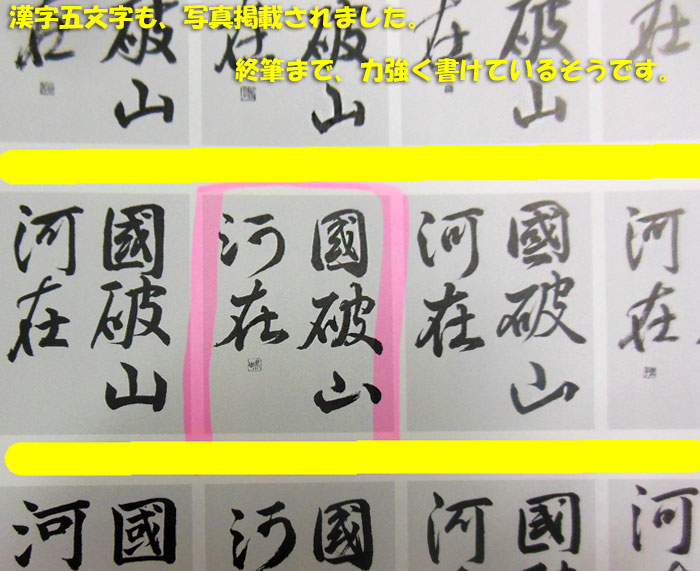 漢字五文字も、写真掲載されました。
終筆まで、力強く書けているそうです。
破山
在
破山
在
破山
在
在
國破山
河在
國破山
河在
國破山
河在
河在
國
河
國
河
國
河
河